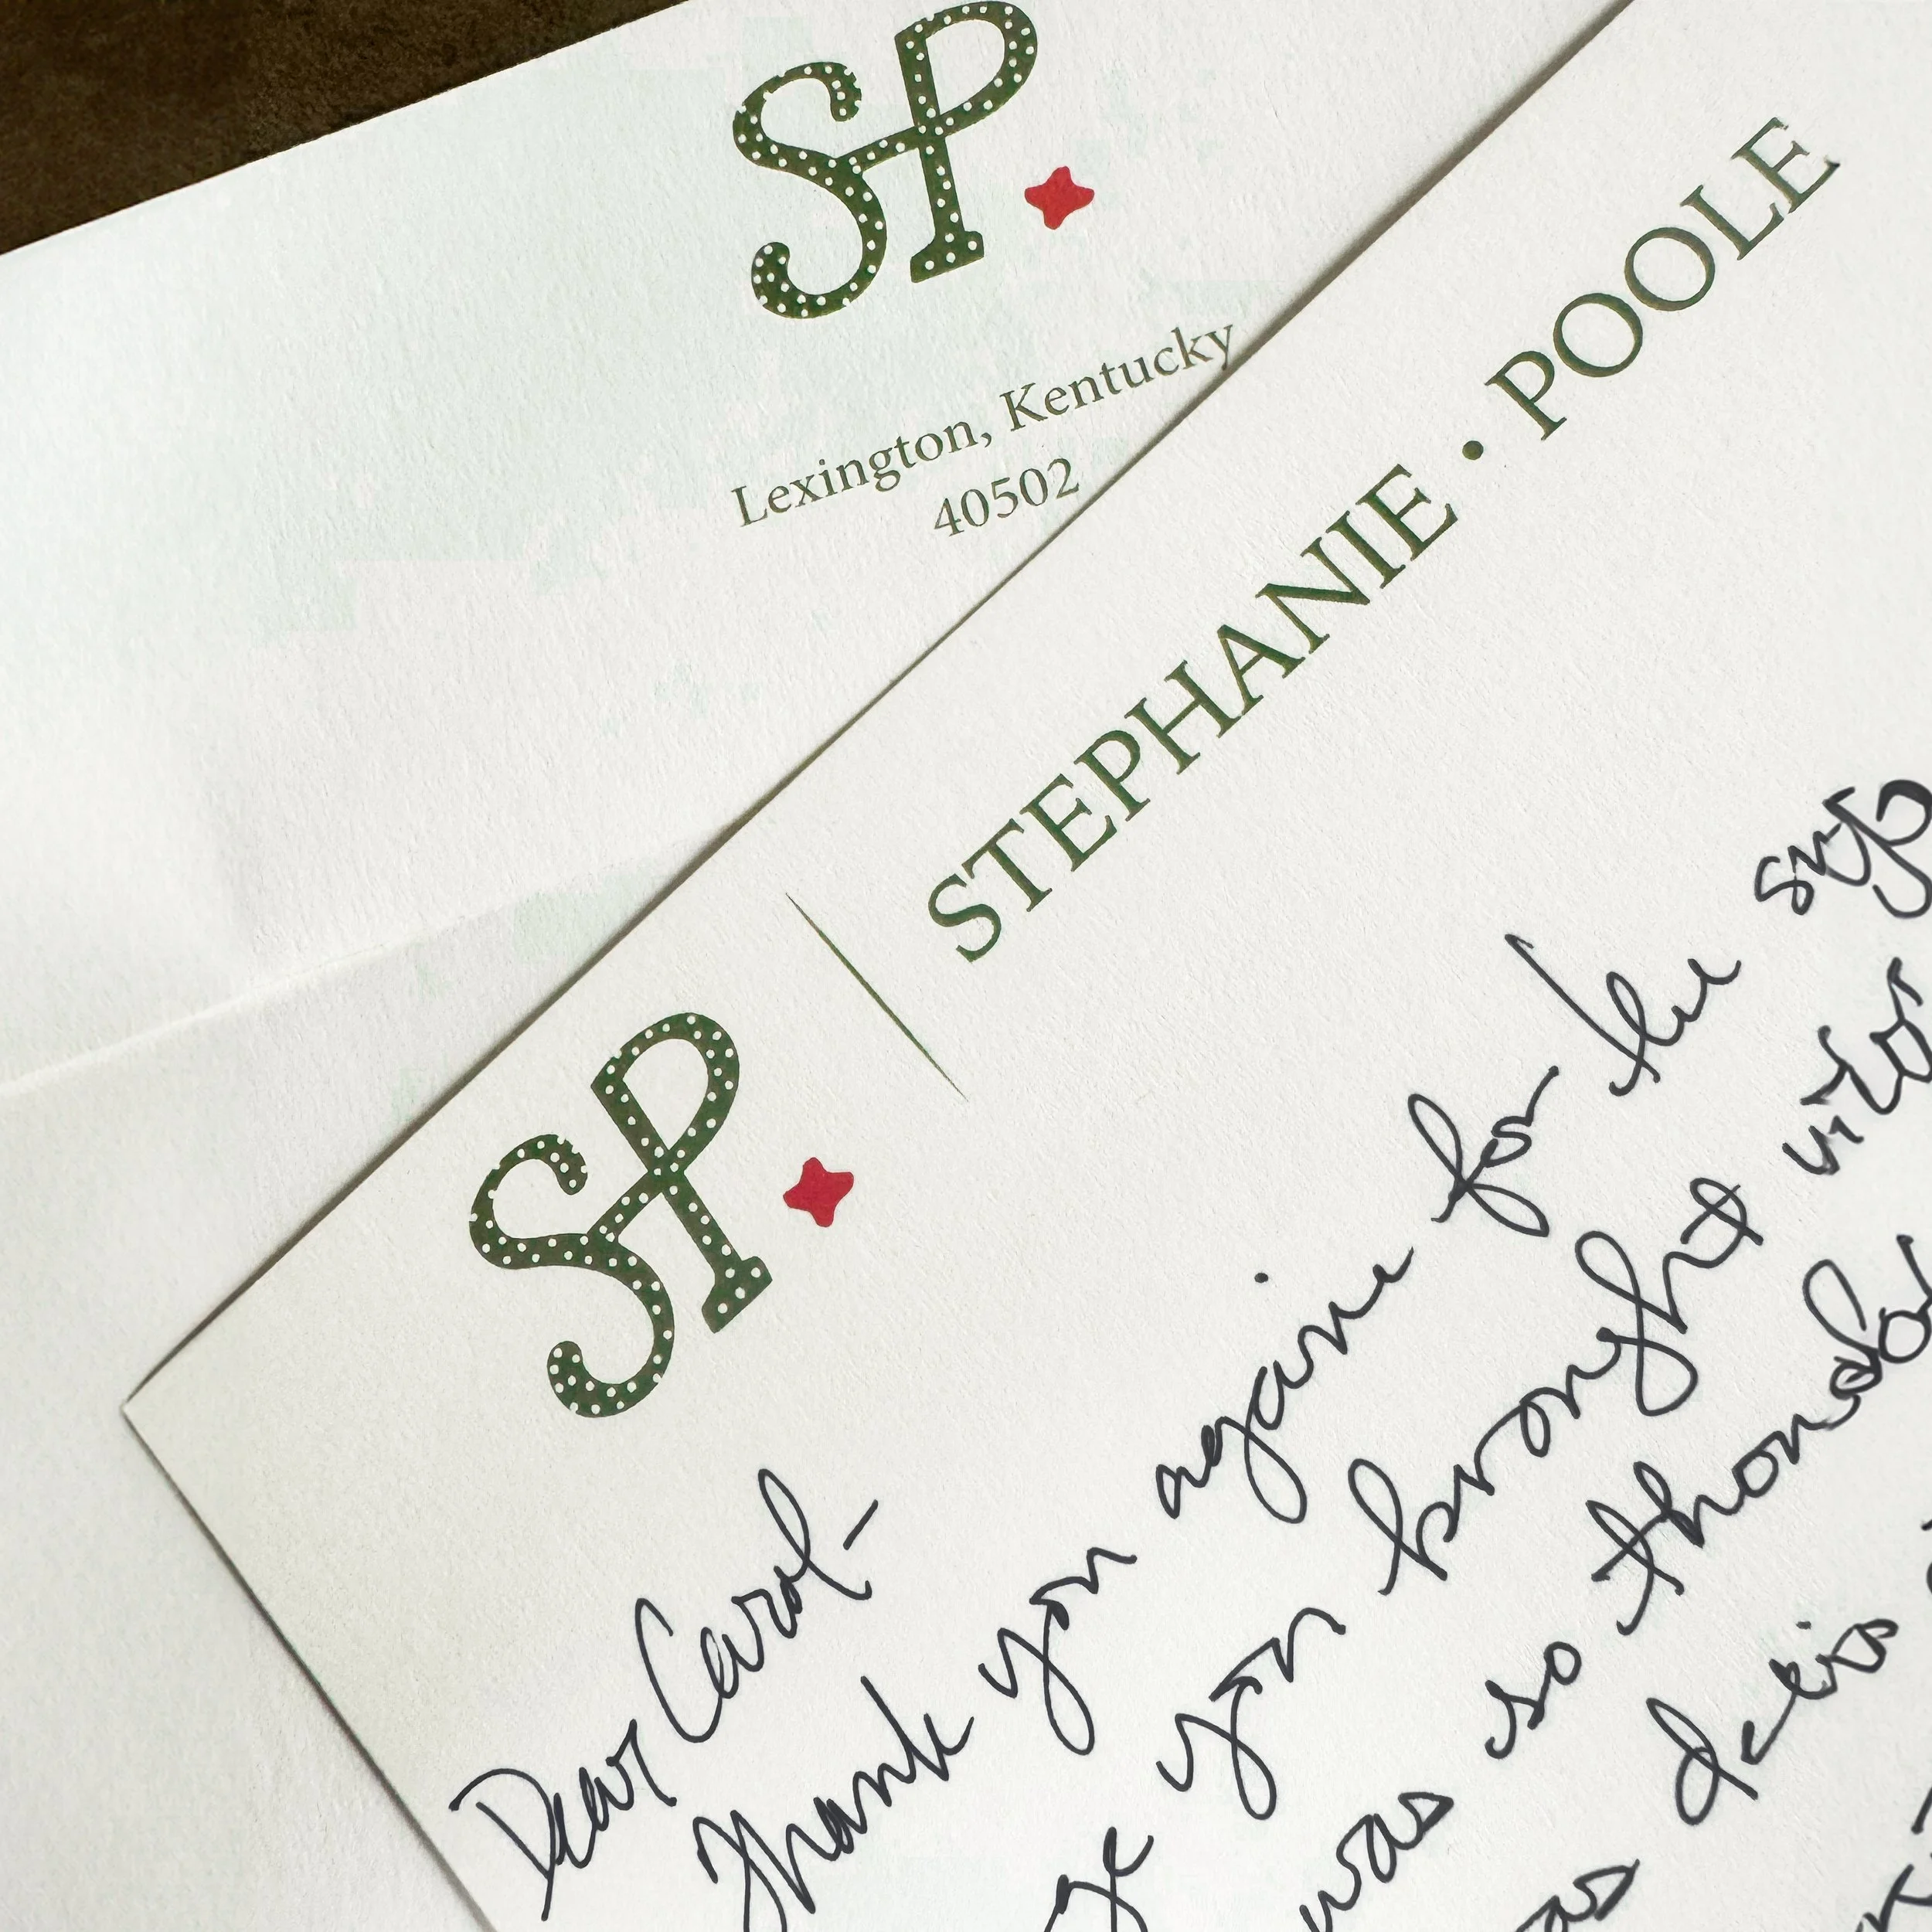 SP
Lexington, Kentucky
40502
SP
STEPHANIE • POOLE
Dear Carol-
Thank you again for the
you brought
was so